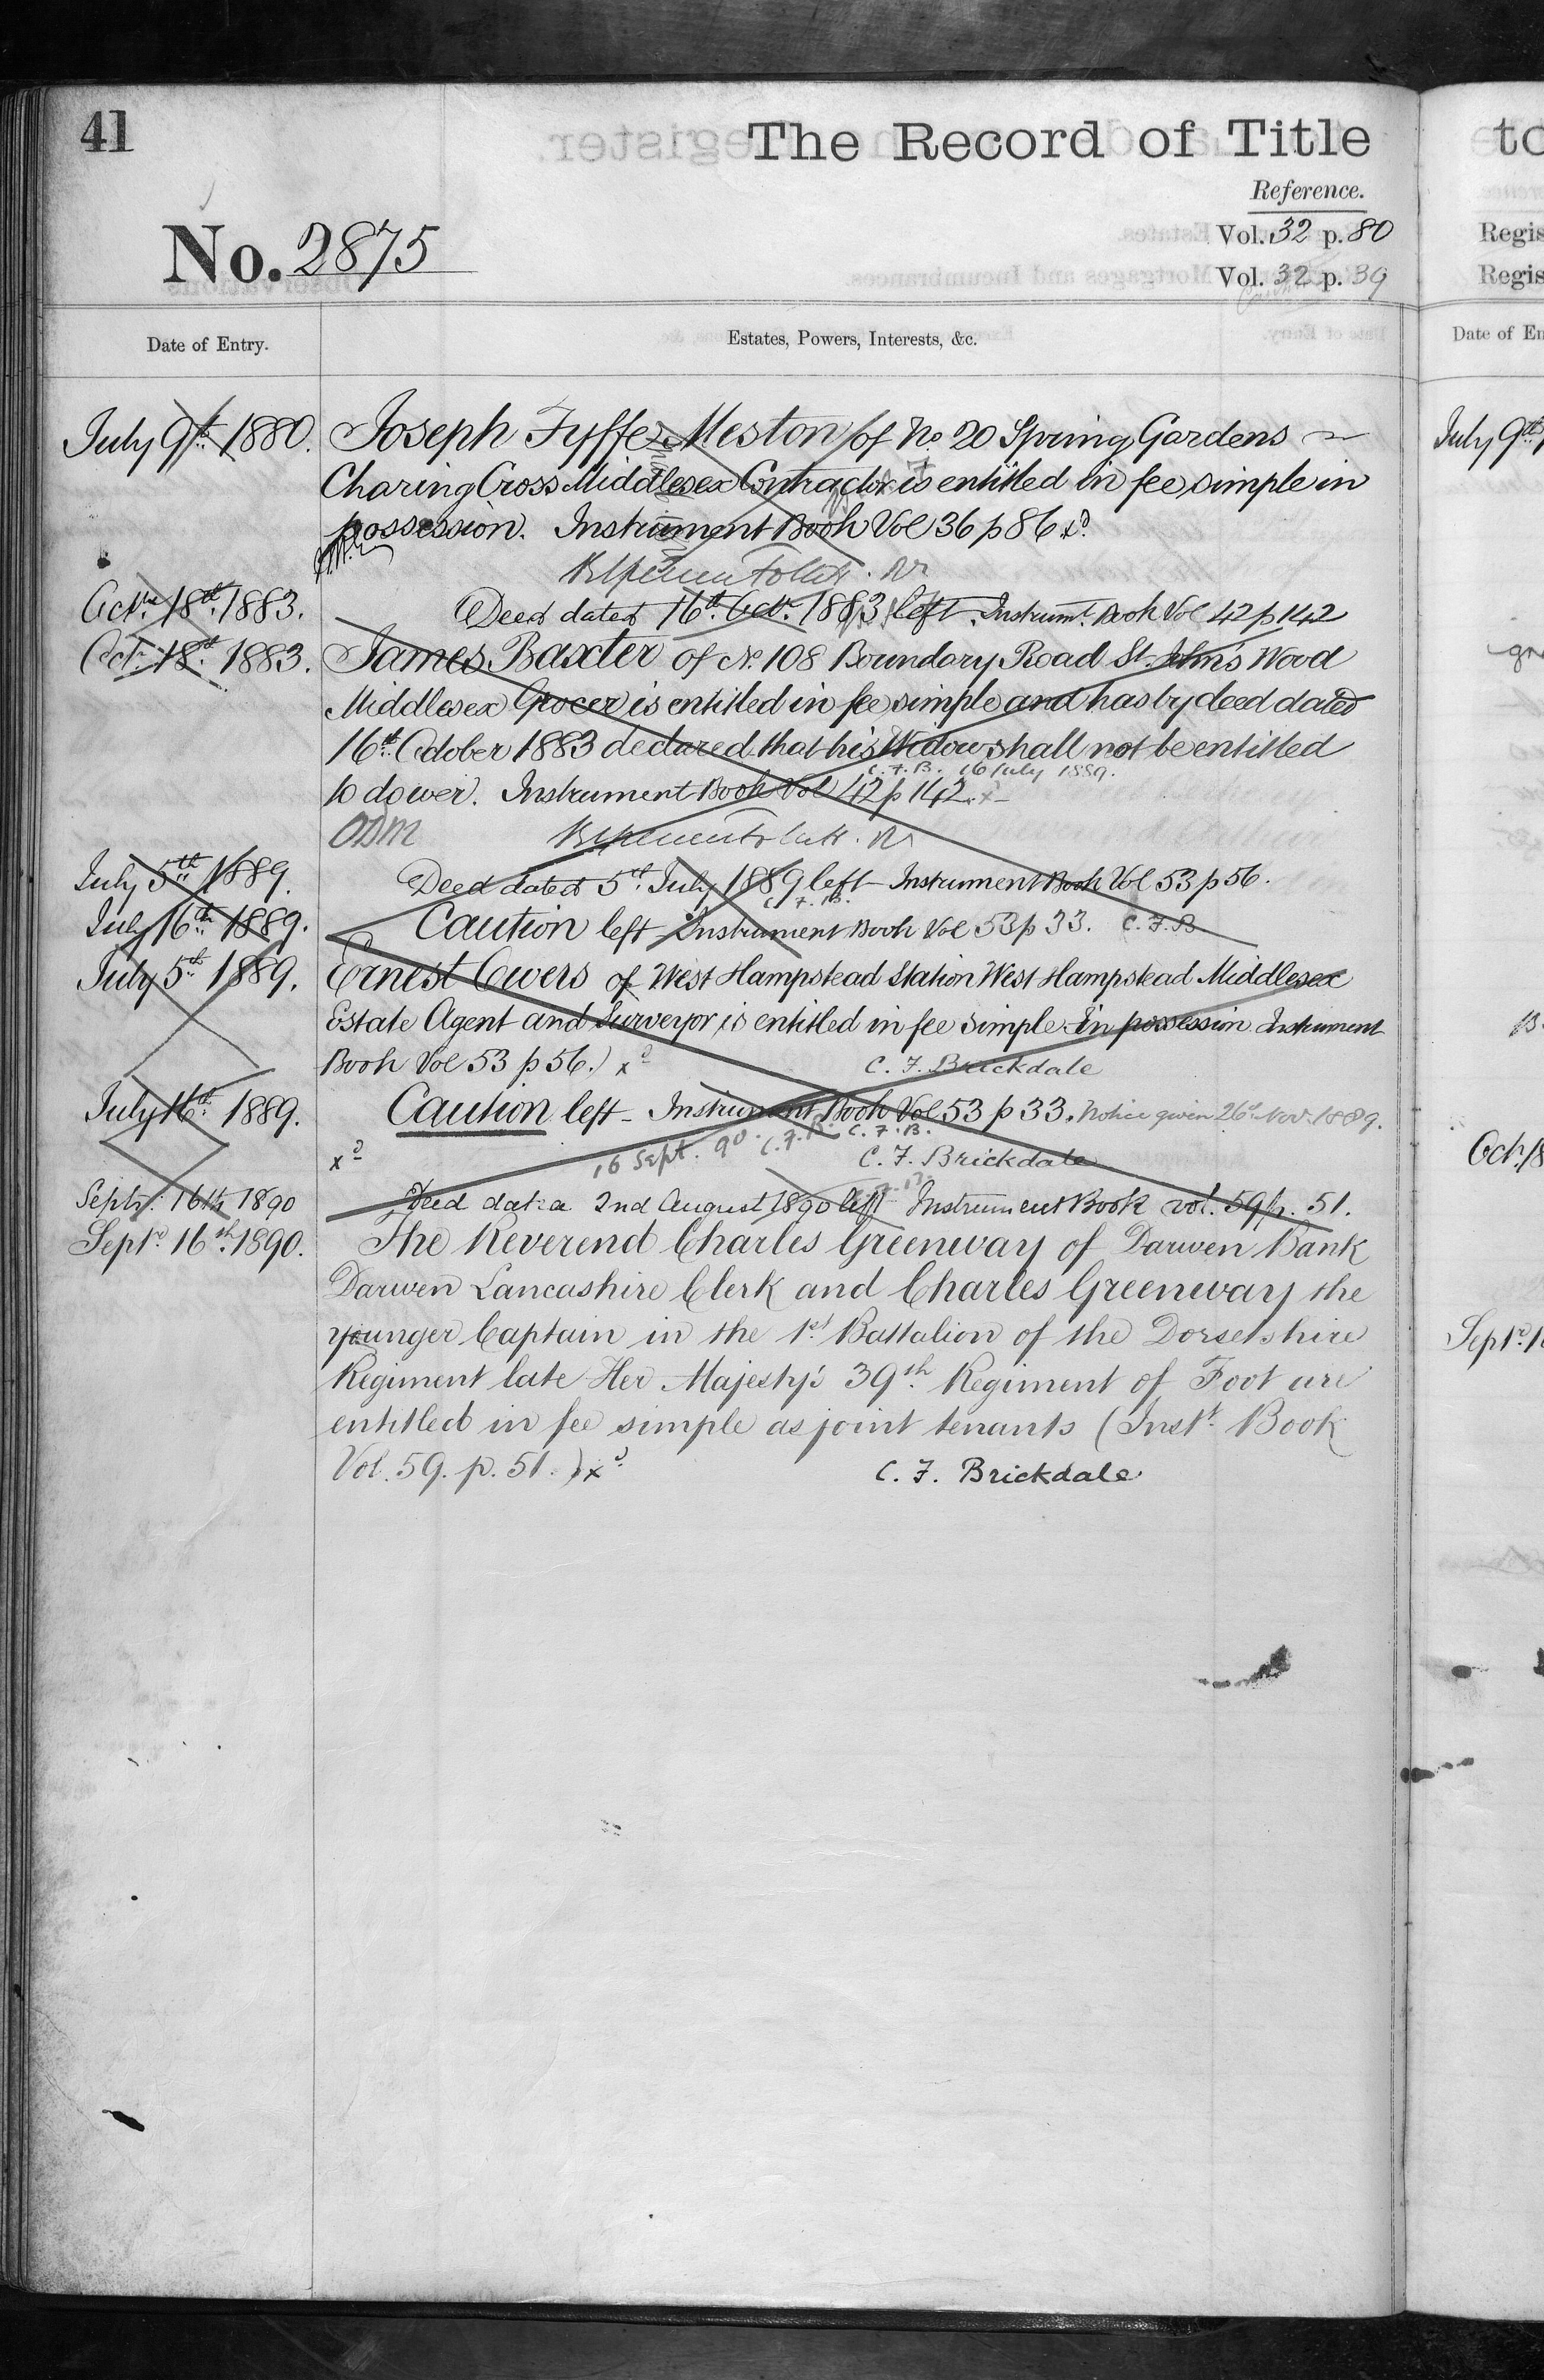 41
The Record of Title
Reference.
No. 2875
Vol. 32 p. 80
Vol. 32 p. 39
Date of Entry.
Estates, Powers, Interests, &c.
July 9th 1880. Joseph Fyffe Meston of No. 20 Spring Gardens
Charing Cross Middlesex Contractor is entitled in fee simple in
possession. Instrument Book Vol 36 p 86 xd.
Octr 18th 1883. Deed dated 16th Octr. 1883 left. Instrumt. Book Vol 42 p 142
Oct. 18th 1883. James Baxter of No. 108 Boundary Road St. John's Wood
Middlesex Grocer is entitled in fee simple and has by deed dated
16th October 1883 declared that his Widow shall not be entitled
C.F.B. 16 July 1889.
to dower. Instrument Book Vol 42 p 142. xd
July 5th 1889. Deed dated 5th July 1889 left Instrument Book Vol 53 p 56.
C.F.B.
July 16th 1889. Caution left Instrument Book Vol 53 p 33. C.F.B
July 5th 1889. Ernest Owers of West Hampstead Station West Hampstead Middlesex
Estate Agent and Surveyor is entitled in fee simple in possession Instrument
Book Vol 53 p 56.) xd C. F. Brickdale
July 16th 1889. Caution left - Instrument Book Vol 53 p 33. Notice given 26th Nov. 1889.
16 Sept. 90. C.F.B. C.F.B.
xd C. F. Brickdale
Septr. 16th 1890 Deed dated 2nd August 1890 left Instrument Book vol. 59 p. 51.
Septr 16th 1890. The Reverend Charles Greenway of Darwen Bank
Darwen Lancashire Clerk and Charles Greenway the
younger Captain in the 1st Battalion of the Dorsetshire
Regiment late Her Majesty's 39th Regiment of Foot are
entitled in fee simple as joint tenants (Inst. Book
Vol. 59. p. 51.) xd C. F. Brickdale
to
Regis
Regis
Date of En
July 9th
Oct. 18
Septr. 1